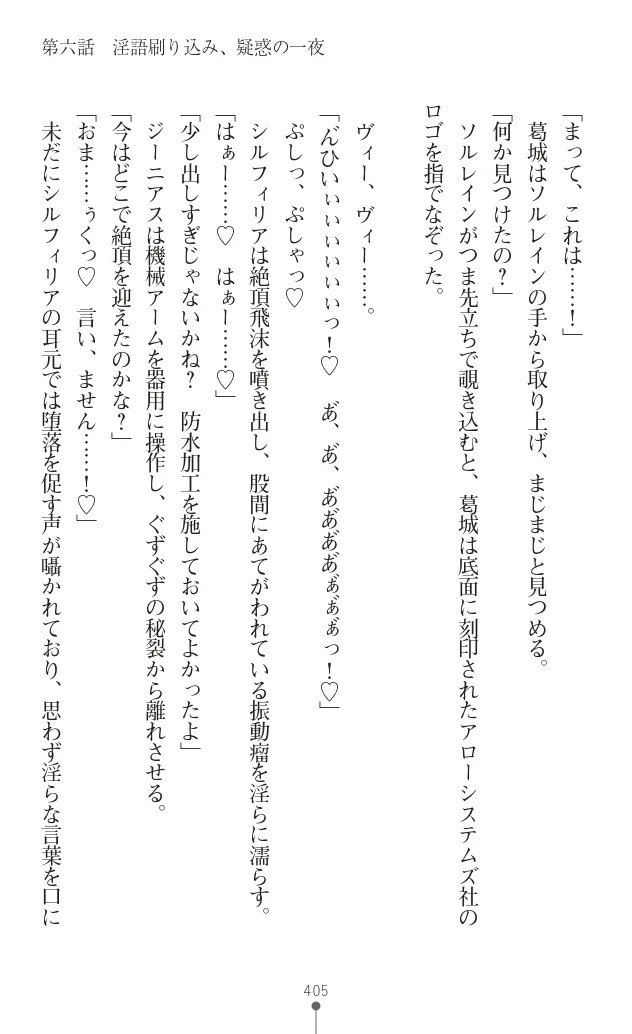 第六話　淫語刷り込み、疑惑の一夜
「まって、これは……！」
　葛城はソルレインの手から取り上げ、まじまじと見つめる。
「何か見つけたの？」
　ソルレインがつま先立ちで覗き込むと、葛城は底面に刻印されたアローシステムズ社の
ロゴを指でなぞった。
　ヴィー、ヴィー……。
「ん゛ひいぃぃぃぃぃぃっ！♡　あ゛、あ゛、あ゛あ゛あ゛あ゛ぁ゛ぁ゛ぁ゛っ！♡」
　ぷしっ、ぷしゃっ♡
　シルフィリアは絶頂飛沫を噴き出し、股間にあてがわれている振動瘤を淫らに濡らす。
「はぁー……♡　はぁー……♡」
「少し出しすぎじゃないかね？　防水加工を施しておいてよかったよ」
　ジーニアスは機械アームを器用に操作し、ぐずぐずの秘裂から離れさせる。
「今はどこで絶頂を迎えたのかな？」
「おま……ぅくっ♡　言い、ません……！♡」
　未だにシルフィリアの耳元では堕落を促す声が囁かれており、思わず淫らな言葉を口に
405